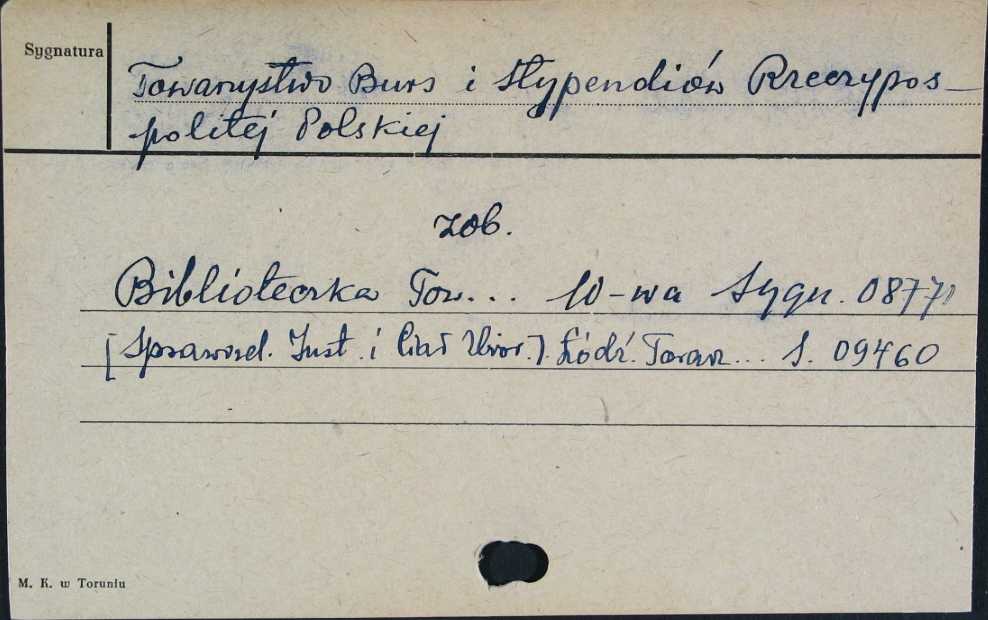 Sygnatura
Towarzystwo Burs i Stypendiów Rzeczypos-
politej Polskiej
zob.
Biblioteczka Tow... W-wa Sygn. 08771
[Sprawozd. Inst. i Ciał Zbior.]. Łódź. Towarz... S. 09460
M. K. w Toruniu